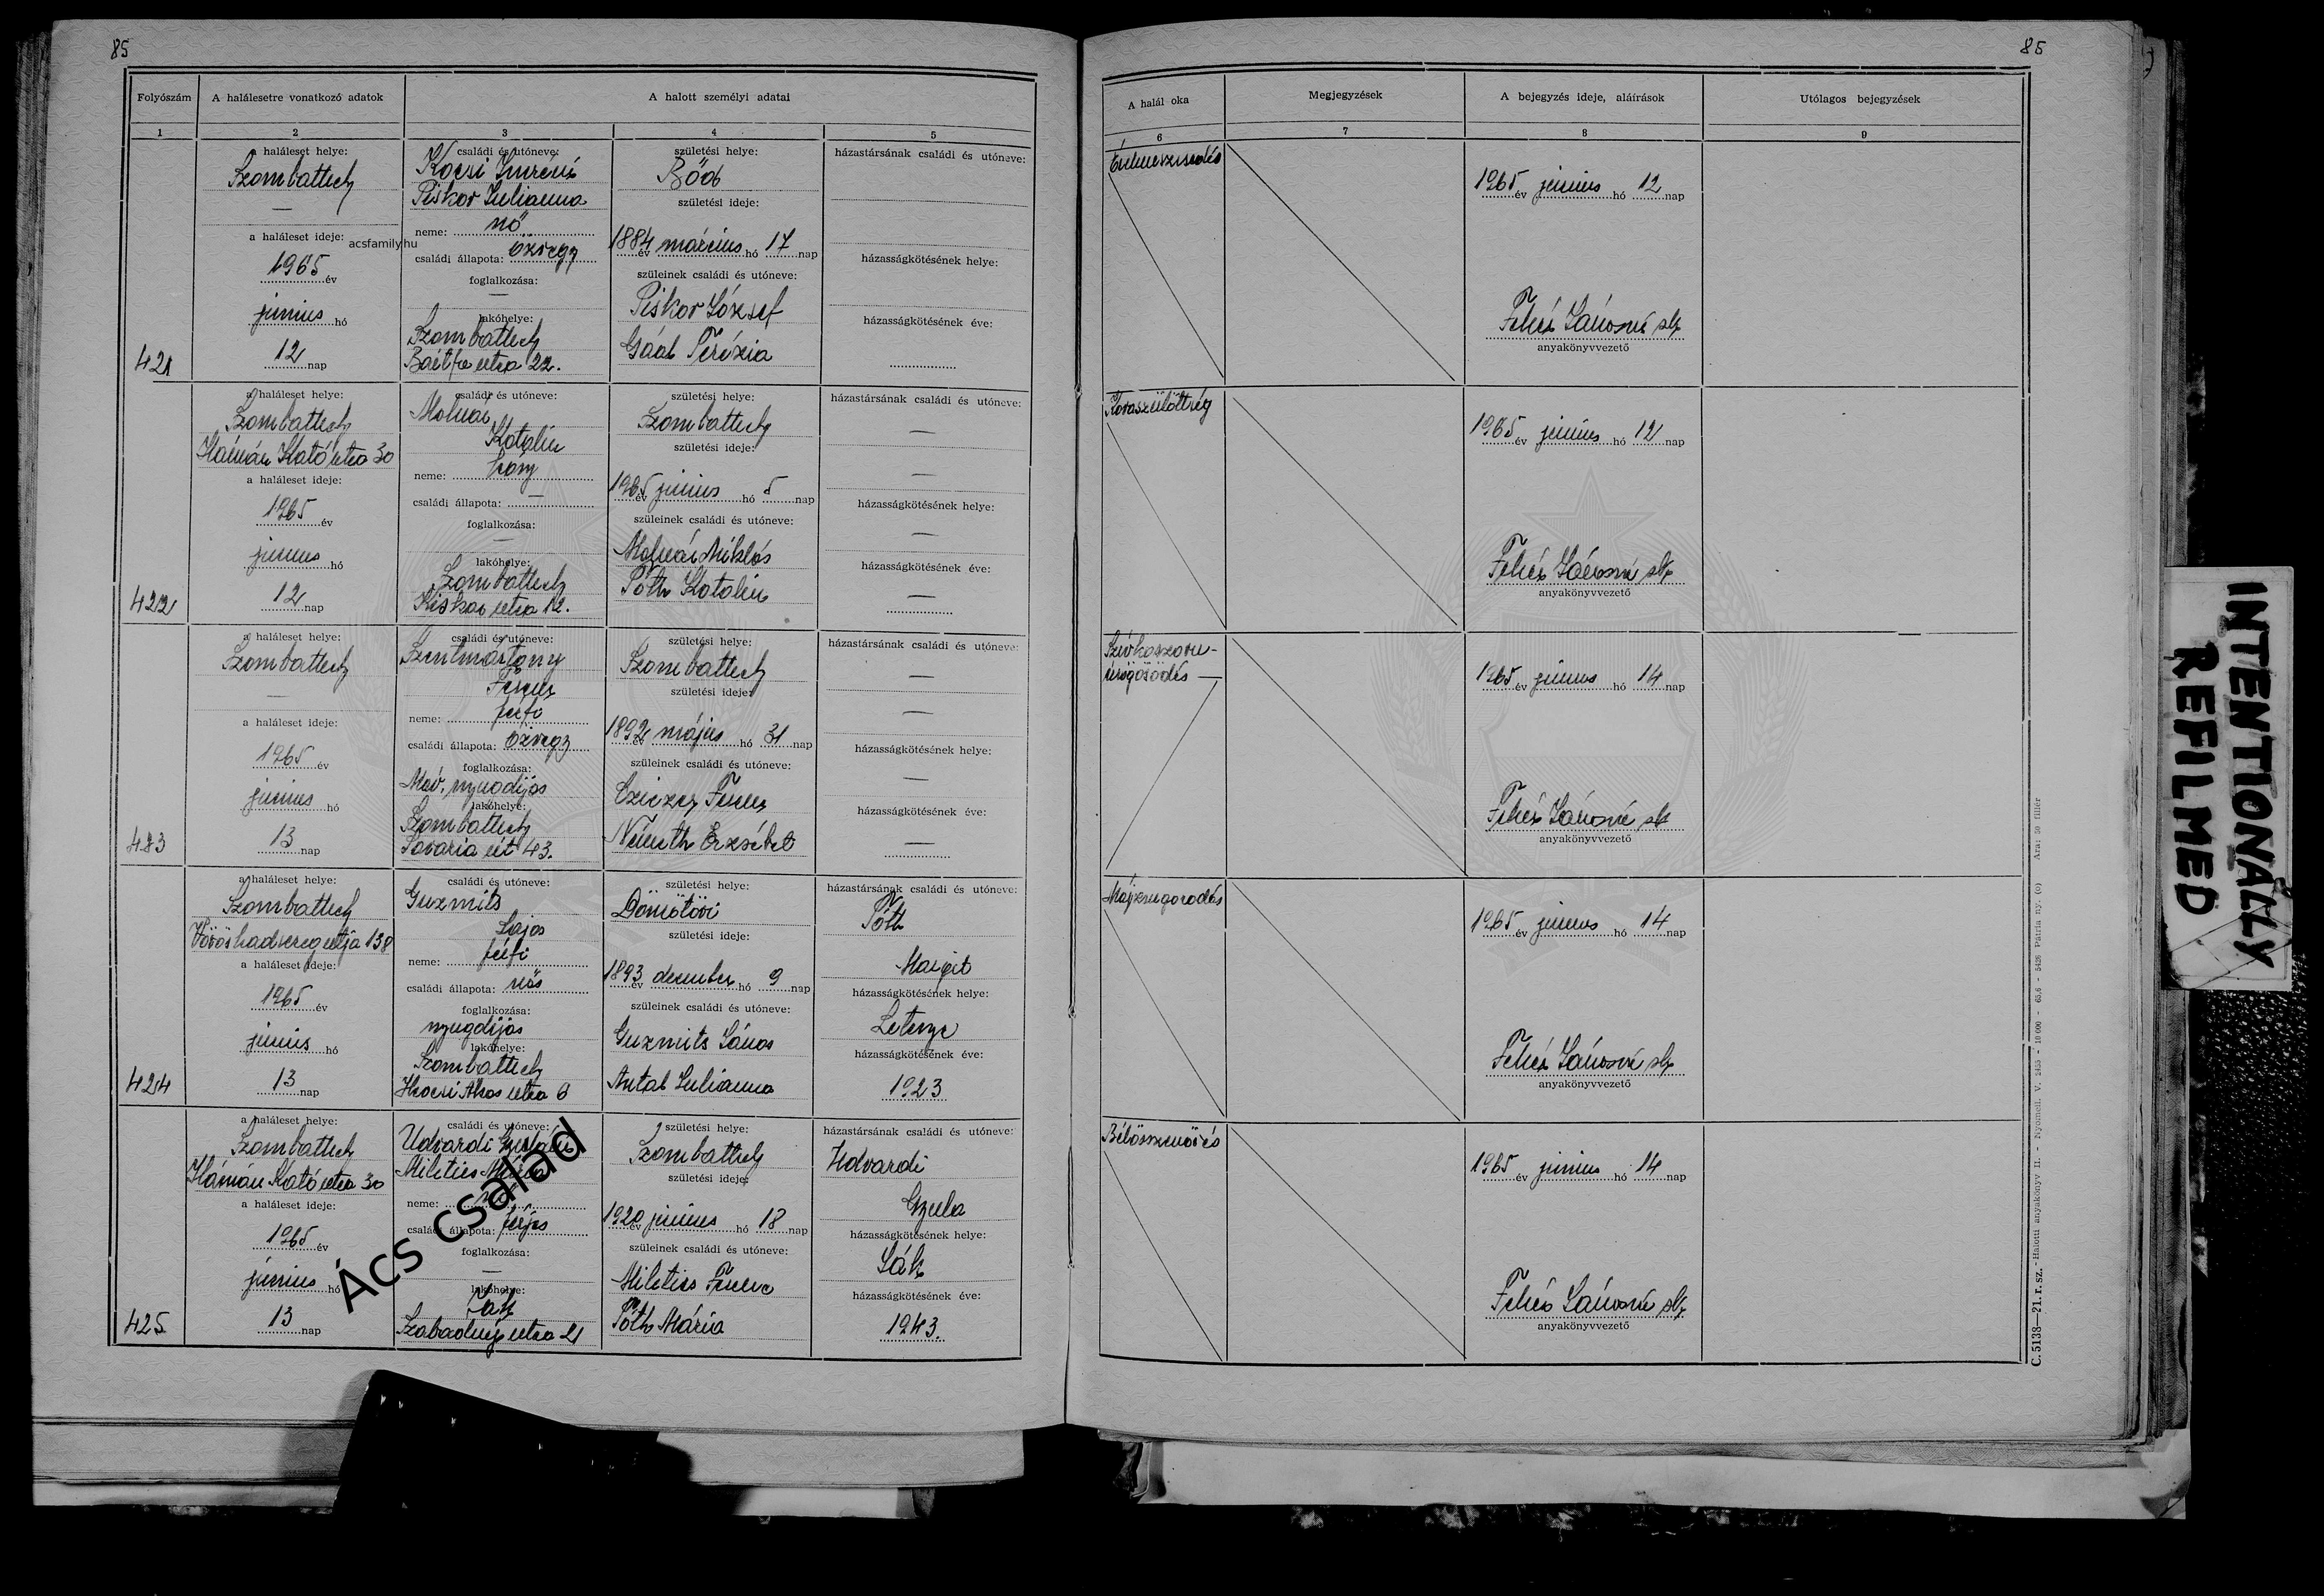 85
85
Folyószám
A halálesetre vonatkozó adatok
A halott személyi adatai
1
2
3
4
5
a haláleset helye:
Szombathely
—
a haláleset ideje:
acsfamily.hu
1965 év
június hó
12 nap
421
családi és utóneve:
Kocsi Imréné
Piskor Julianna
neme: nő
családi állapota: özvegy
foglalkozása:
—
lakóhelye:
Szombathely
Bártfa utca 22.
születési helye:
Bőd
születési ideje:
1884 év március hó 17 nap
szüleinek családi és utóneve:
Piskor József
Gaál Terézia
házastársának családi és utóneve:
házasságkötésének helye:
házasságkötésének éve:
a haláleset helye:
Szombathely
Hámán Kató utca 30
a haláleset ideje:
1965 év
június hó
12 nap
422
családi és utóneve:
Molnár
Katalin
neme: leány
családi állapota: —
foglalkozása:
—
lakóhelye:
Szombathely
Kiskar utca 12.
születési helye:
Szombathely
születési ideje:
1965 év június hó 5 nap
szüleinek családi és utóneve:
Molnár Miklós
Tóth Katalin
házastársának családi és utóneve:
—
—
házasságkötésének helye:
—
házasságkötésének éve:
—
a haláleset helye:
Szombathely
—
a haláleset ideje:
1965 év
június hó
13 nap
483
családi és utóneve:
Szentmártony
Ferenc
neme: férfi
családi állapota: özvegy
foglalkozása:
Máv. nyugdíjas
lakóhelye:
Szombathely
Savaria út 43.
születési helye:
Szombathely
születési ideje:
1892 év május hó 31 nap
szüleinek családi és utóneve:
Ferenc
Németh Erzsébet
házastársának családi és utóneve:
—
—
házasságkötésének helye:
—
házasságkötésének éve:
—
a haláleset helye:
Szombathely
Vöröshadsereg útja 138
a haláleset ideje:
1965 év
június hó
13 nap
424
családi és utóneve:
Guzmits
Lajos
neme: férfi
családi állapota: nős
foglalkozása:
nyugdíjas
lakóhelye:
Szombathely
utca 6
születési helye:
Dömötöri
születési ideje:
1893 év december hó 9 nap
szüleinek családi és utóneve:
Guzmits János
Antal Julianna
házastársának családi és utóneve:
Tóth
Margit
házasságkötésének helye:
Letenye
házasságkötésének éve:
1923
a haláleset helye:
Szombathely
Hámán Kató utca 30
a haláleset ideje:
1965 év
június hó
13 nap
425
családi és utóneve:
Udvardi Gyuláné
Miletics Mária
neme: nő
családi állapota: férjes
foglalkozása:
—
lakóhelye:
Ják
Szabadság utca 21
születési helye:
Szombathely
születési ideje:
1920 év június hó 18 nap
szüleinek családi és utóneve:
Miletics Ferenc
Tóth Mária
házastársának családi és utóneve:
Udvardi
Gyula
házasságkötésének helye:
Ják
házasságkötésének éve:
1943.
Ács család
A halál oka
Megjegyzések
A bejegyzés ideje, aláírások
Utólagos bejegyzések
6
7
8
9
Érelmeszesedés
1965 év június hó 12 nap
Fehér Jánosné sk
anyakönyvvezető
Koraszülöttség
1965 év június hó 12 nap
Fehér Jánosné sk
anyakönyvvezető
Szívkoszorú-
érrögösödés —
1965 év június hó 14 nap
Fehér Jánosné sk
anyakönyvvezető
Májzsugorodás
1965 év június hó 14 nap
Fehér Jánosné sk
anyakönyvvezető
Bélösszenövés
1965 év június hó 14 nap
Fehér Jánosné sk
anyakönyvvezető
C. 5138—21. r. sz. - Halotti anyakönyv II. - Nyomell. V. 2455 - 10 000 - 63.6 - 5426 Pátria ny. (o) Ára: 50 fillér
INTENTIONALLY
REFILMED